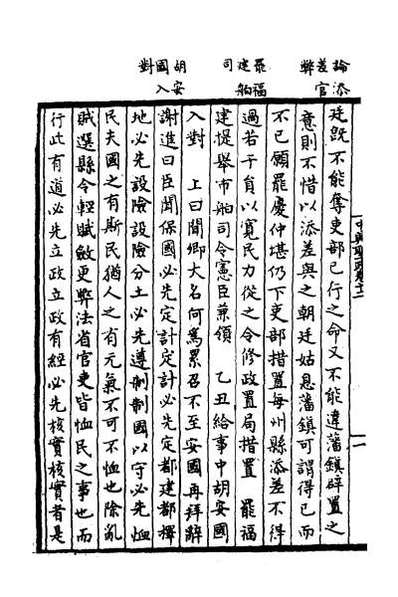 論添差官弊
罷福建舶司
胡安國入對
中興聖政卷十二
廷既不能奪吏部已行之命又不能違藩鎮辟置之
意則不惜以添差與之朝廷姑息藩鎮可謂得已而
不已願罷慶仲堪仍下吏部措置每州縣添差不得
過若干員以寬民力從之令修政置局措置 罷福
建提舉市舶司令憲臣兼領 乙丑給事中胡安國
入對 上曰聞卿大名何為累召不至安國再拜辭
謝進曰臣聞保國必先定計定計必先定都建都擇
地必先設險設險分土必先遵制制國以守必先恤
民夫國之有斯民猶人之有元氣不可不恤也除亂
賊選縣令輕賦斂更弊法省官吏皆恤民之事也而
行此有道必先立政立政有經必先核實核實者是